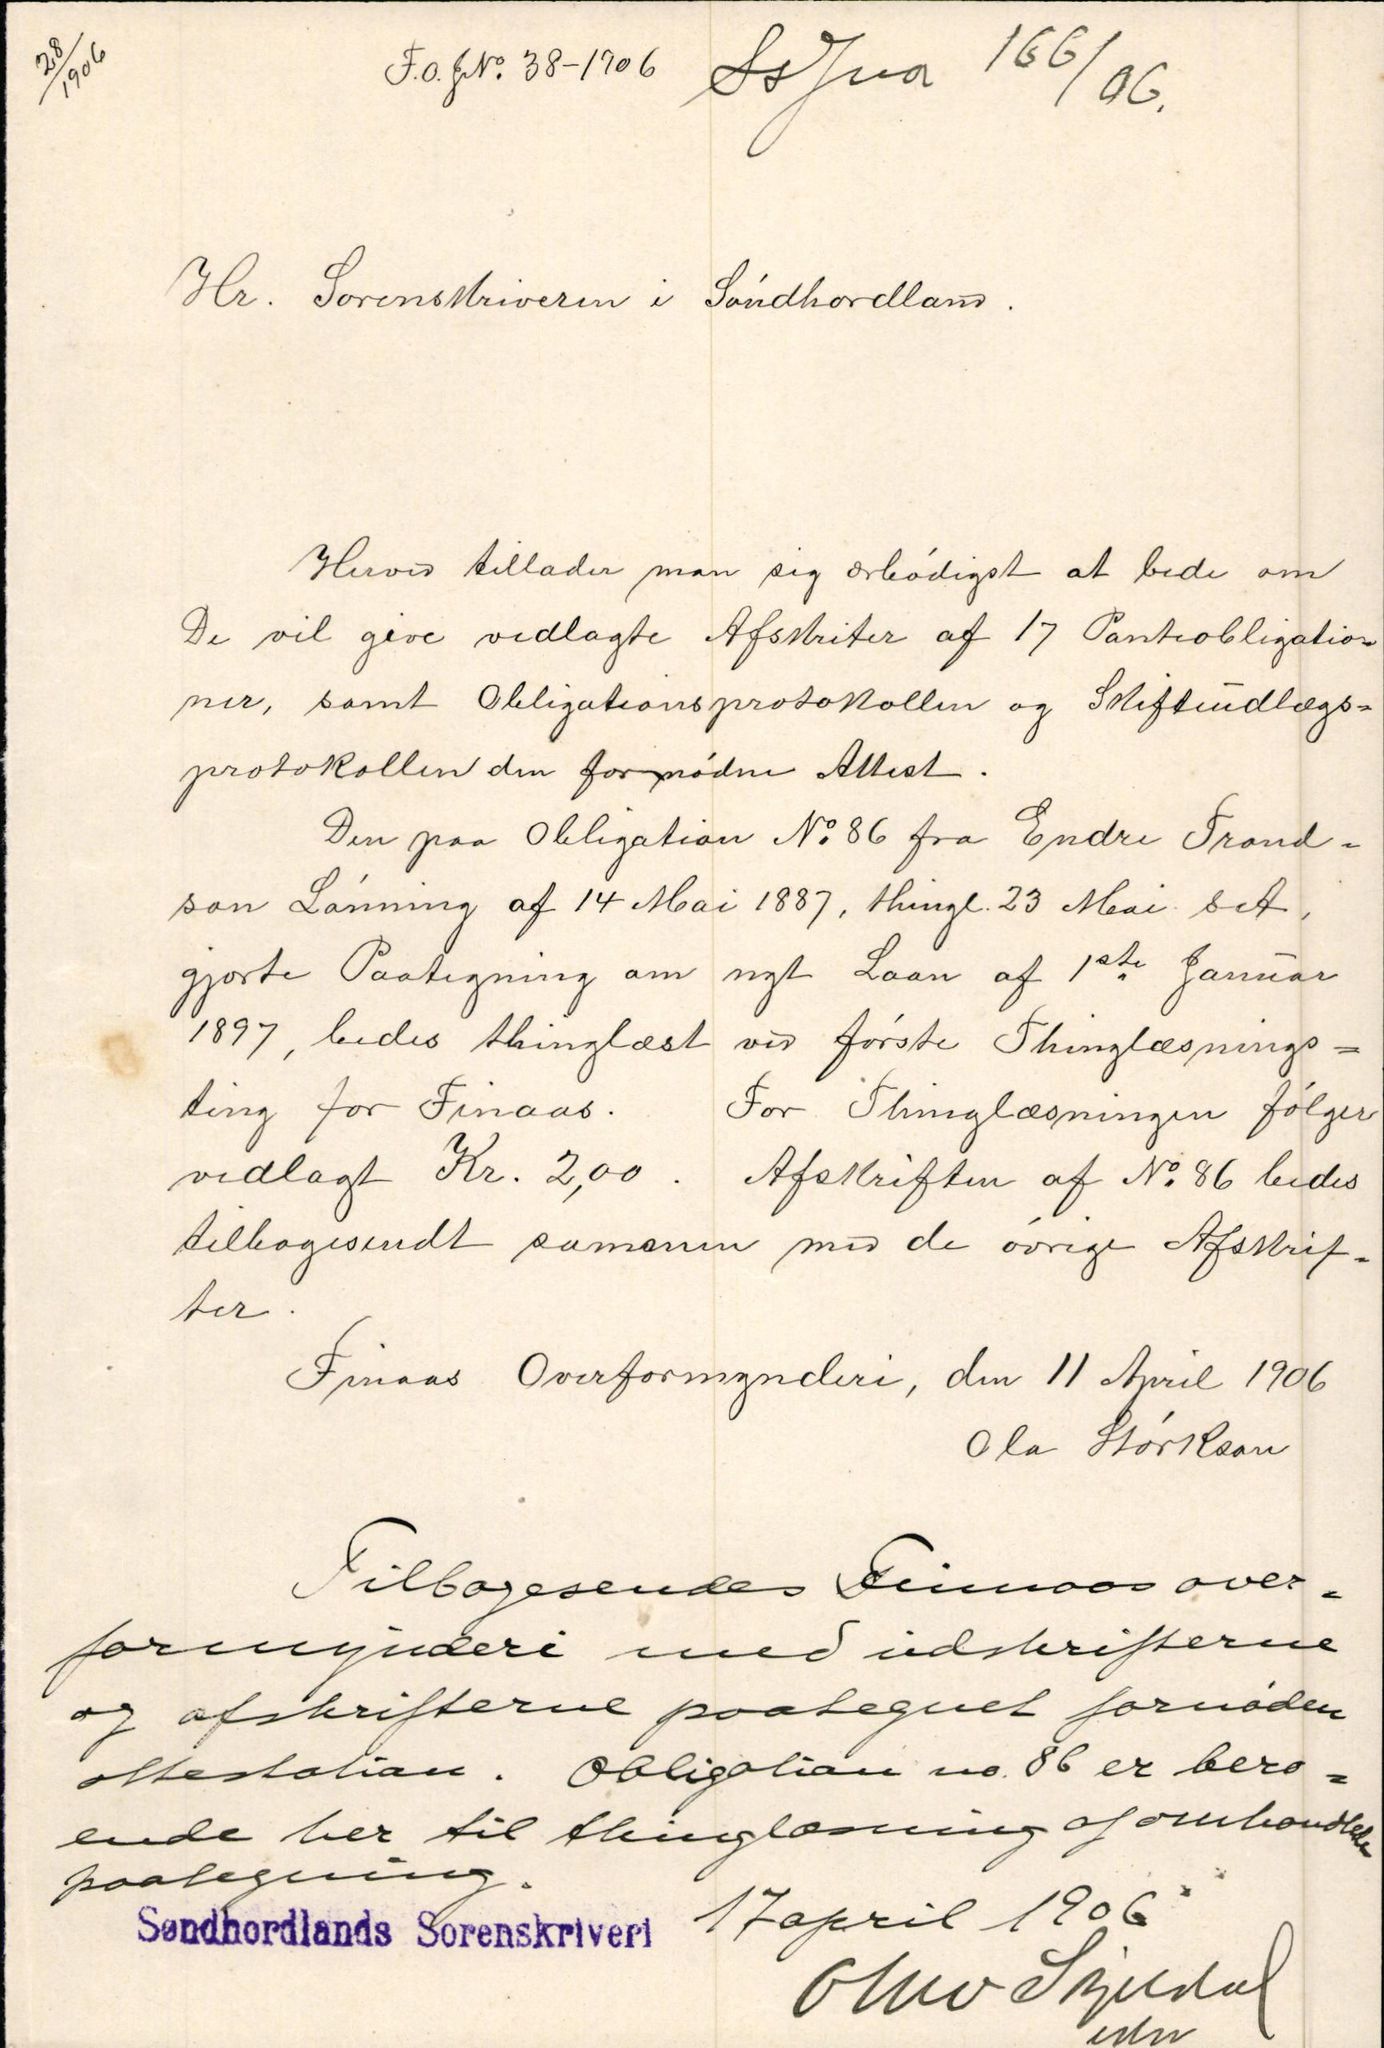 28/1906
F.O.JNo. 38-1906
166/06.
Hr. Sorenskriveren i Söndhordland.
Herved tillader man sig ærbödigst at bede om
De vil give vedlagte Afskriter af 17 Panteobligatio-
ner, samt Obligationsprotokollen og Skifteudlægs=
protokollen den fornödne Attest.
Den paa Obligation No. 86 fra Endre Trond-
son Lönning af 14 Mai 1887, thingl. 23 Mai s A,
gjorte Paategning om nyt Laan af 1ste Januar
1897, bedes thinglæst ved förste Thinglæsnings=
ting for Finaas. For Thinglæsningen fölger
vedlagt Kr. 2,00. Afskriften af No. 86 bedes
tilbagesendt sammen med de övrige Afskrif-
ter.
Finaas Overformynderi, den 11 April 1906
Ola Störkson
Tilbagesendes Finnaas over-
formynderi med udskrifterne
og afskrifterne paategnet fornøden
attestation. Obligation no. 86 er bero=
ende her til thinglæsning af omhandlede
paategning.
Søndhordlands Sorenskriveri 17 april 1906
Skjeldal